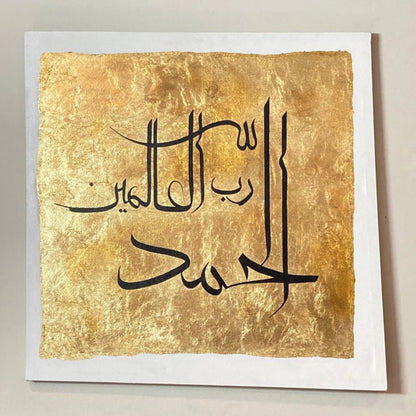 الحمد
لله رب العالمين